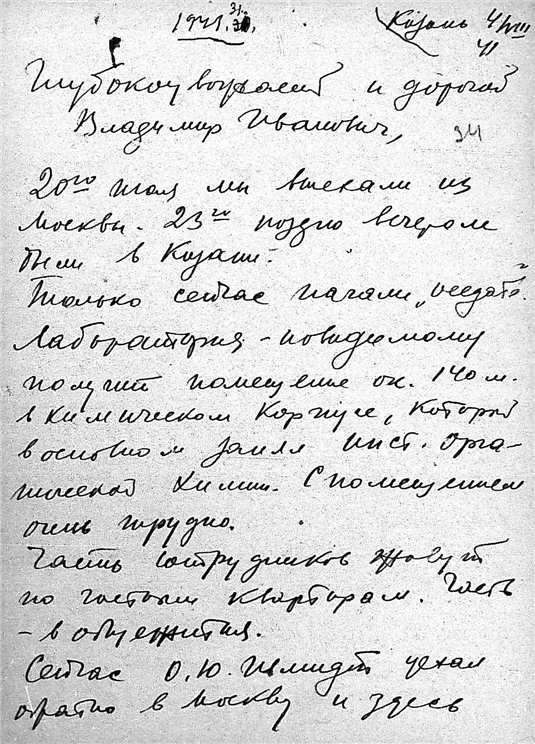 1941.31.
Казань 4/VIII
41
Глубокоуважаемый и дорогой
Владимир Иванович,
34
20го июля мы выехали из
Москвы. 23го поздно вечером
были в Казани.
Только сейчас начали „оседать“.
Лаборатория - повидимому
получит помещение ок. 140 м.
в химическом корпусе, который
в основном занял Инст. Орга-
нической Химии. С помещением
очень трудно.
Часть сотрудников живут
по частным квартирам. Часть
- в общежитиях.
Сейчас О.Ю. Шмидт уехал
обратно в Москву и здесь